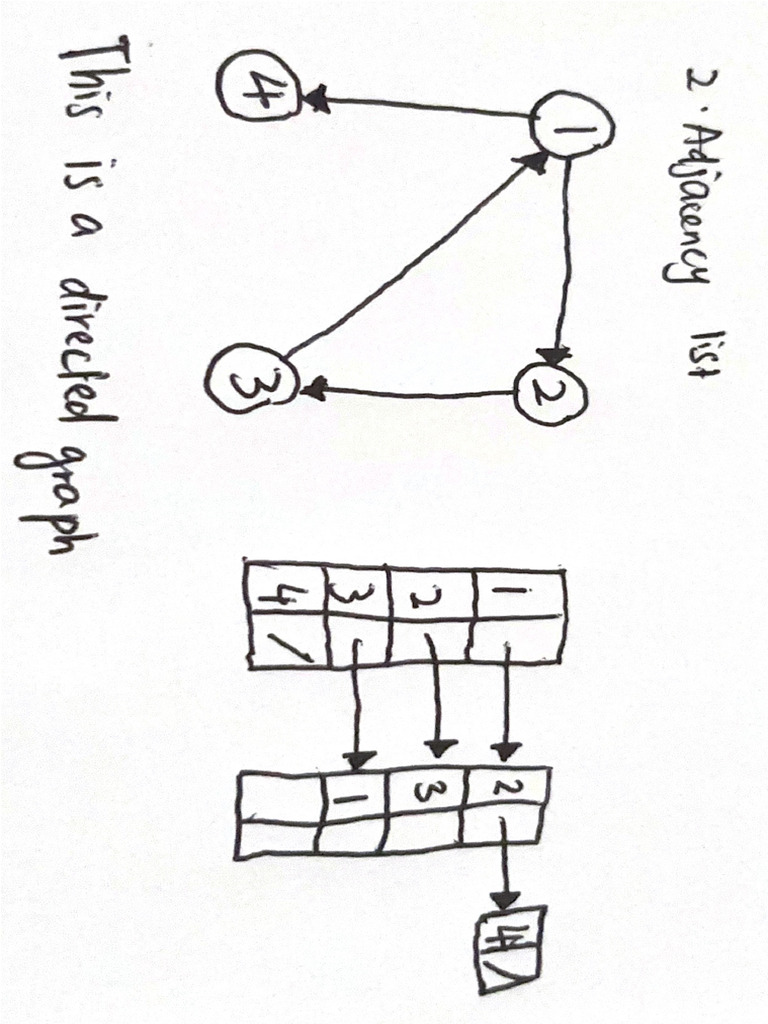 2. Adjacency list
1 2
4 3
1 2 4 /
2 3
3 1
4 /
This is a directed graph